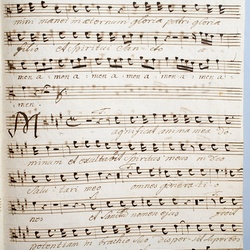 mini manet in æternum gloria patri gloria
filio et Spiritui Sancto a
men a men a men a men a men a
men.
Magnificat anima mea Do
minum et exultavit Spiritus meus in Deo
Salutari meo omnes generatio
nes et Sanctum nomen ejus
potentiam in brachio suo dispersit Superbos